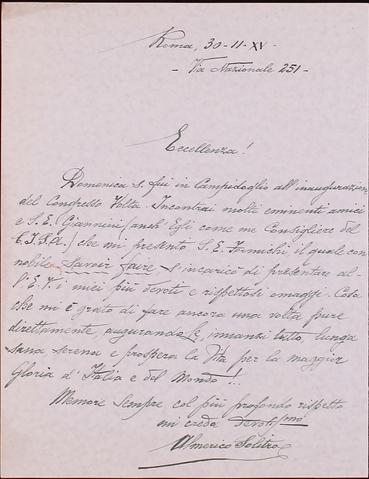 Roma, 30-11-XV-
- Via Nazionale 251-
Eccellenza!
Domenica s. fui in Campidoglio all'inaugurazione
del Congresso Volta. Incontrai molti eminenti amici
e S.E. Giannini (anch'Egli come me Consigliere del
C.I.S.A.) che mi presentò S.E. Formichi, il quale con
nobile savoir faire s'incaricò di presentare al-
l'E.V. i miei più devoti e rispettosi omaggi. Cosa
che mi è grato di fare ancora una volta pure
direttamente, augurando Le, innanzi tutto, lunga
sana serena e prospera la Vita per la maggior
Gloria d'Italia e del Mondo!..
Memore sempre col più profondo rispetto
mi creda devotismo
Almerico Solitro